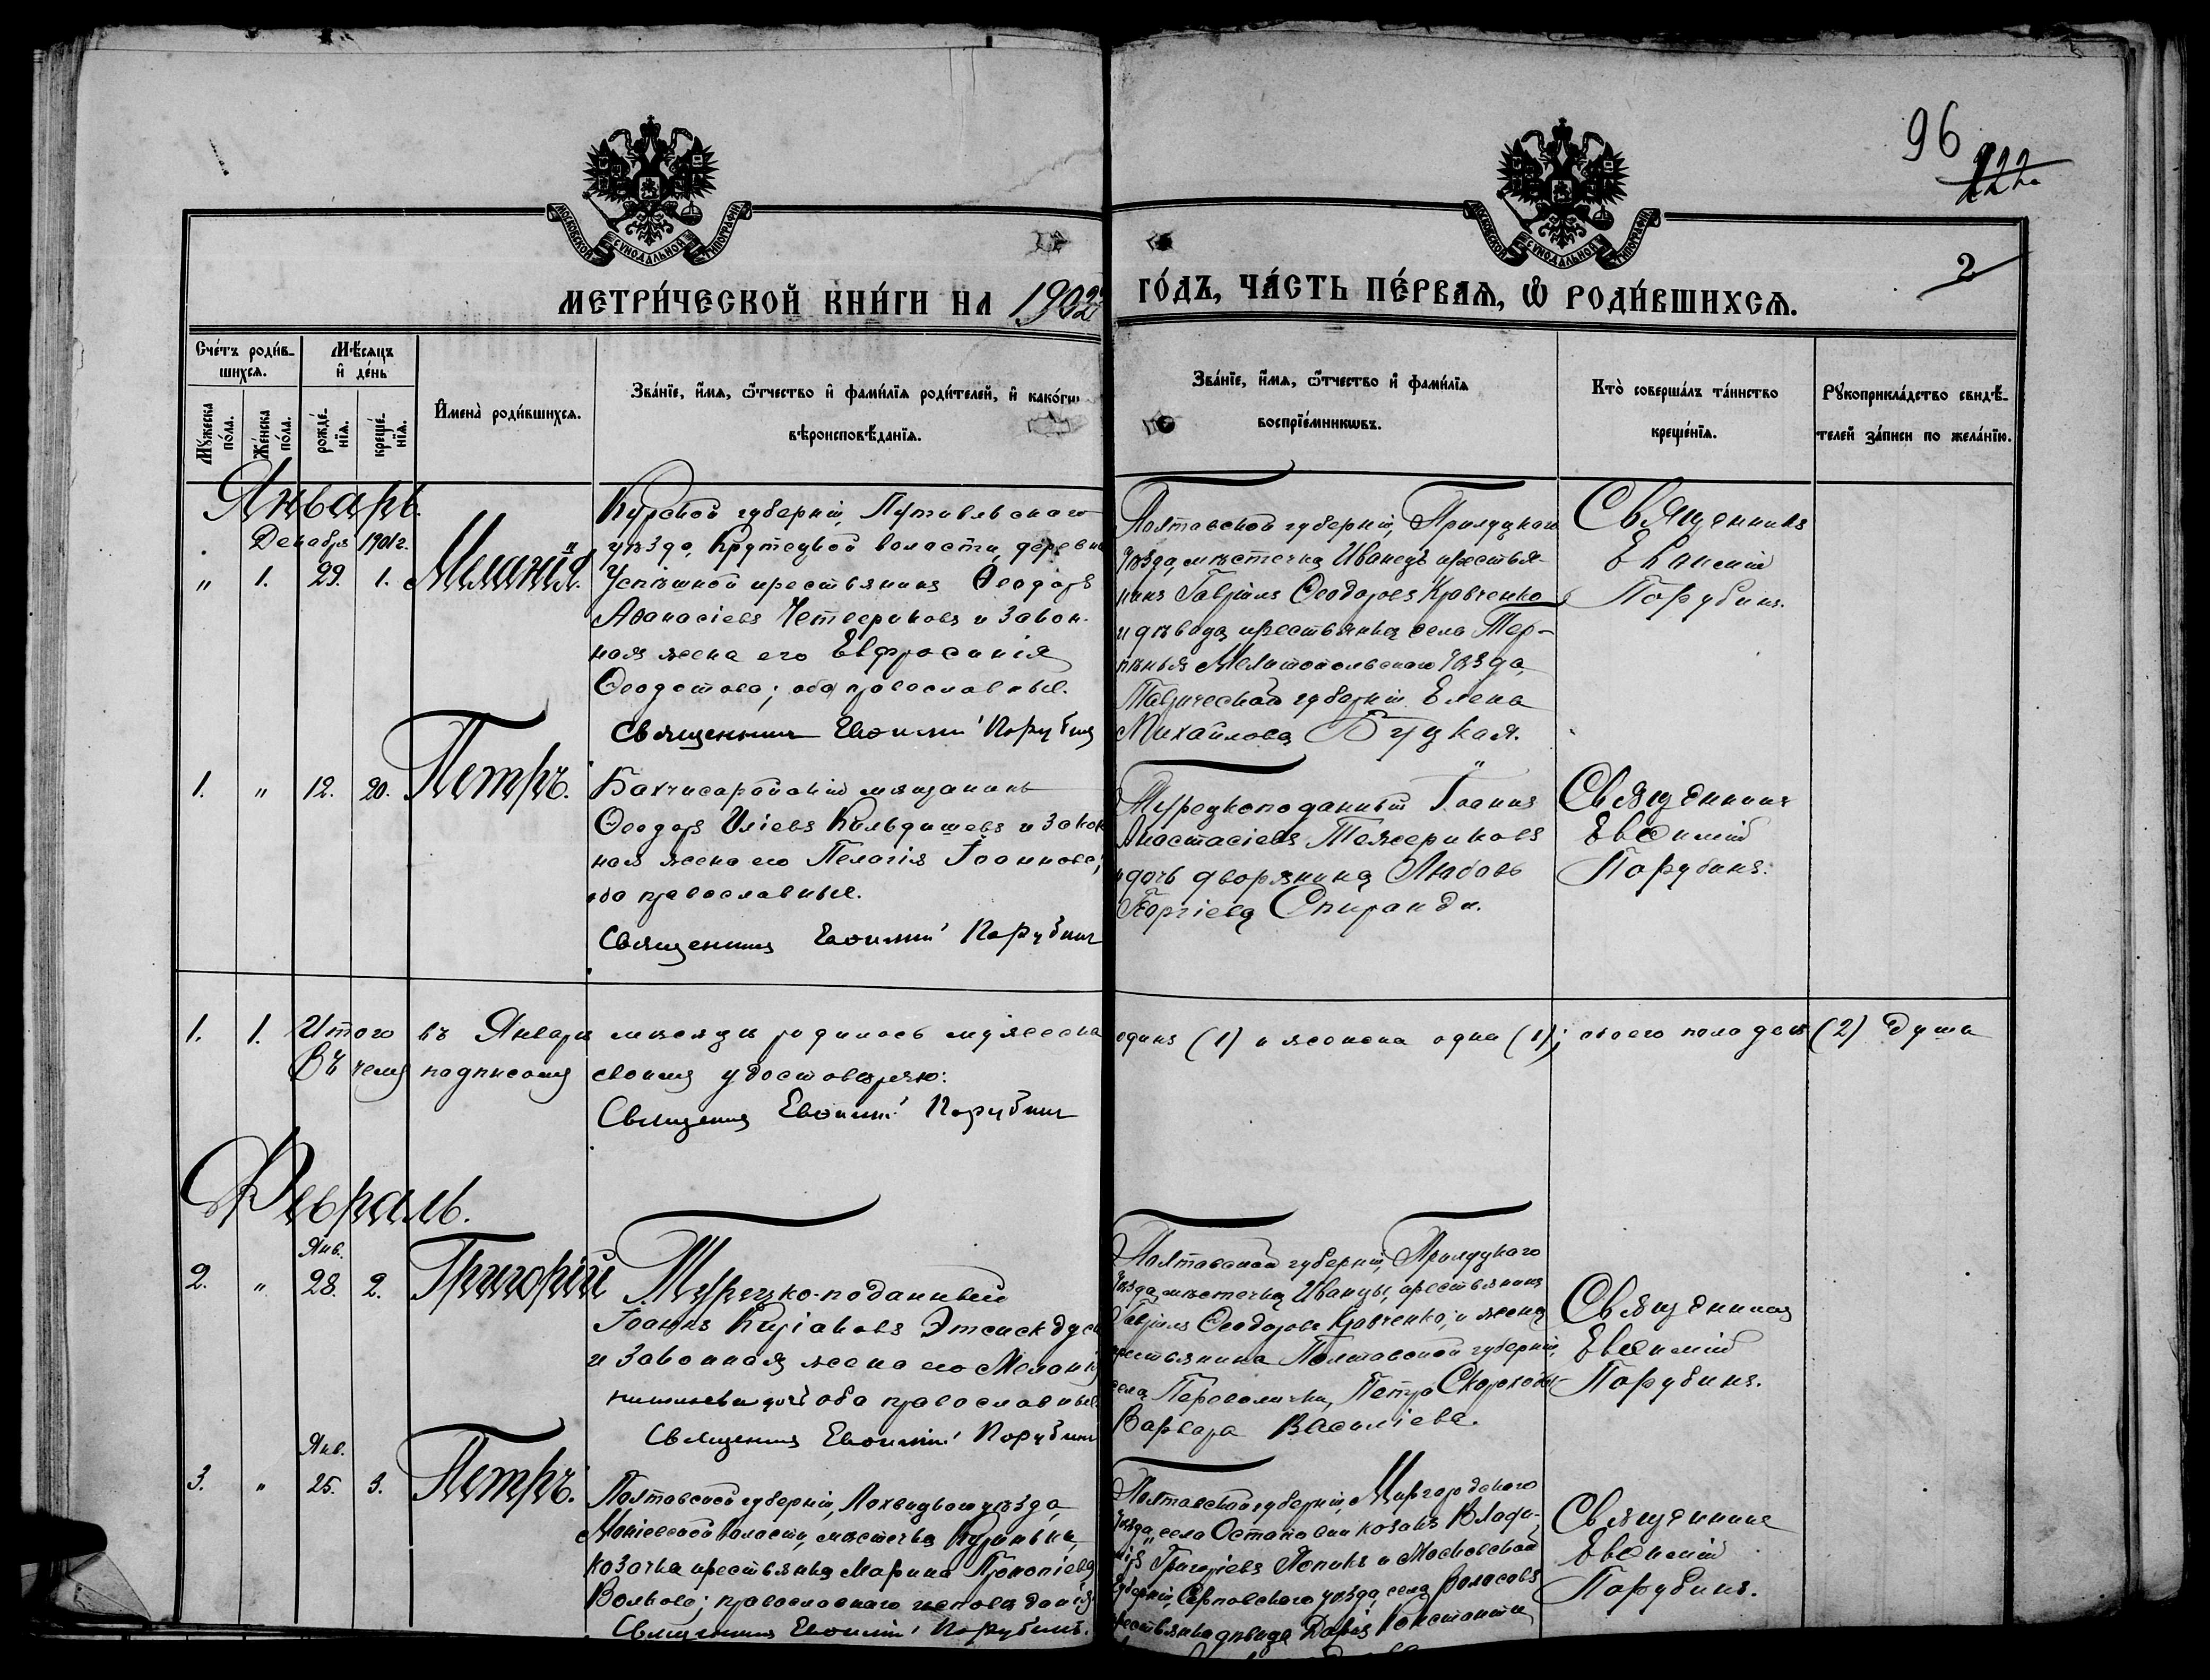 96
122
2
МОСКОВСКОЙ СѴНОДАЛЬНОЙ ТИПОГРАФІИ
МОСКОВСКОЙ СѴНОДАЛЬНОЙ ТИПОГРАФІИ
МЕТРИ́ЧЕСКОЙ КНИ́ГИ НА 1902
ГО́ДЪ, ЧА́СТЬ ПЕ́РВАѦ, Ѡ҆ РОДИ́ВШИХСѦ.
Сче́тъ роди́в-
шихся.
Мѣ́сяцъ
и҆ де́нь
Мꙋ́жеска по́ла.
Же́нска по́ла.
рожде́-
нїя.
креще́-
нїя.
И҆мена̀ роди́вшихся.
Зва́нїе, и҆́мя, ѻ҆́тчество и҆ фами́лїя роди́телей, и҆ како́гѡ
вѣроисповѣ́данїя.
Зва́нїе, и҆́мя, ѻ҆́тчество и҆ фами́лїя
воспрїе́мникѡвъ.
Кто̀ соверша́лъ та́инство
креще́нїя.
Рꙋкоприкла́дство свидѣ́-
телей за́писи по жела́нїю.
Январь.
Декабря 1901 г.
" 1. 29. 1. Меланія.
Курской губерніи, Путивльскаго
уѣзда, Крутецкой волости, деревни
Успѣшной крестьянинъ Ѳеодоръ
Аѳанасіевъ Четвериковъ и закон-
ная жена его Евфросинія
Ѳеодотова; оба православные.
Священникъ Евѳимій Порубинъ
Полтавской губерніи, Прилуцкаго
уѣзда, мѣстечка Иваницъ крестья-
нинъ Гавріилъ Ѳеодоровъ Кравченко
и дѣвица крестьянка села Тер-
пѣнья Мелитопольскаго уѣзда,
Таврической губерніи Елена
Михайлова Буцкая.
Священникъ
Евѳимій
Порубинъ.
1. " 12. 20. Петръ.
Бахчисарайскій мѣщанинъ
Ѳеодоръ Иліевъ и закон
ная жена его Пелагія Іоаннова;
оба православные.
Священникъ Евѳимій Порубинъ
Турецкоподанный Іоаннъ
Анастасіевъ
и дочь дворянина Любовь
Георгіева Спиранди.
Священникъ
Евѳимій
Порубинъ.
1. 1. Итого въ Январѣ мѣсяцѣ родилось мужеска одинъ (1) и женска одна (1); обоего пола двѣ (2) душа
Въ чемъ подписомъ своимъ удостовѣряю:
Священникъ Евѳимій Порубинъ
Февраль.
Янв.
2. " 28. 2. Григорій
Турецко-подданный
Іоаннъ Киріаковъ
и законная жена его Меланія
оба православные.
Священникъ Евѳимій Порубинъ
Полтавской губерніи, Прилуцкаго
уѣзда, мѣстечка Иваницы, крестьянинъ
Гавріилъ Ѳеодоровъ Кравченко, и жена
крестьянина Полтавской губерніи,
села Переволочки, Петра
Варвара Василіева.
Священникъ
Евѳимій
Порубинъ.
Янв.
3. " 25. 3. Петръ.
Полтавской губерніи, Лохвицкаго уѣзда,
волости, мѣстечка
козачка крестьянка Марина Прокопіева
Волкова; православнаго исповѣданія
Священникъ Евѳимій Порубинъ.
Полтавской губерніи, Миргородскаго
уѣзда, села козакъ Влади-
міръ Григоріевъ Попикъ и Московской
губерніи, Серпховскаго уѣзда, села
крестьянка дѣвица Дарія Константи
Священникъ
Евѳимій
Порубинъ.